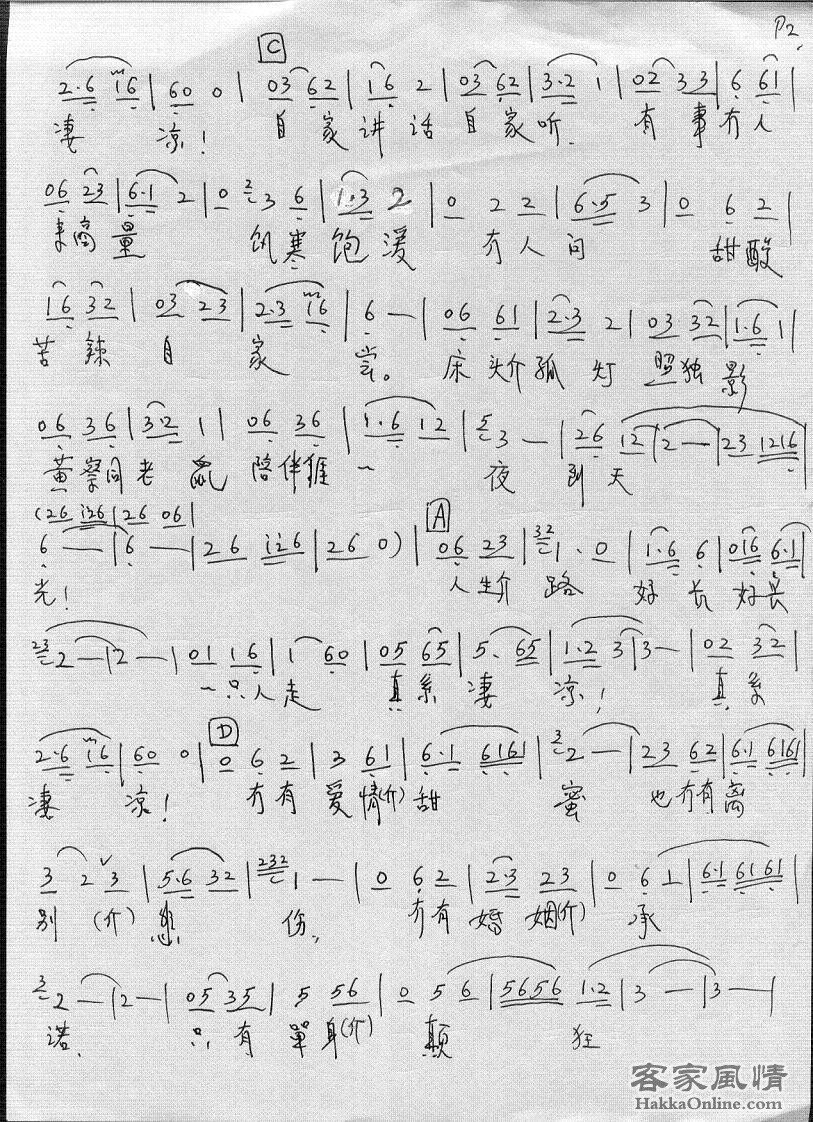 P2
C
2·6 16 | 60 0 | 03 62 | 16 2 | 03 62 | 3·2 1 | 02 33 | 6 61 |
凄 凉! 自家讲话自家听. 有事冇人
06 23 | 6·1 2 | 0 3 6 | 1·3 2 | 0 2 2 | 6·5 3 | 0 6 2 |
来商量 饥寒饱暖 冇人问 甜酸
16 32 | 03 23 | 2·3 16 | 6 — | 06 61 | 2·3 2 | 03 32 | 1·6 1 |
苦辣自家尝。床头介孤灯照独影
06 36 | 32 1 | 06 36 | 1·6 12 | 5 3 — | 26 12 | 2 — | 23 1216 |
黄 同老鼠陪伴 一夜到天
(26 i26 | 26 06 |
A
6 — | 6 — | 26 i26 | 26 0) | 06 23 | 32 1· 0 | 1·6 6 | 016 6·1 |
光! 人生介路好长好长
23 2 — | 2 — | 01 16 | 1 60 | 05 65 | 5· 65 | 1·2 3 | 3 — | 02 32 |
一只人走 真系凄凉! 真系
D
2·6 16 | 60 0 | 0 6 2 | 3 61 | 6·1 6161 | 3 2 — | 23 62 | 6·1 6161 |
凄 凉! 冇有爱情(介)甜蜜 也冇有离
3 2 3 | 5·6 32 | 232 1 — | 0 62 | 2·3 23 | 0 6 1 | 6·1 6161 |
别(介)悲伤, 冇有婚姻(介)承
3 2 — | 2 — | 05 35 | 5 56 | 0 5 6 | 5656 1·2 | 3 — | 3 — |
诺. 只有單身(介)颠狂
客家風情
HakkaOnline.com